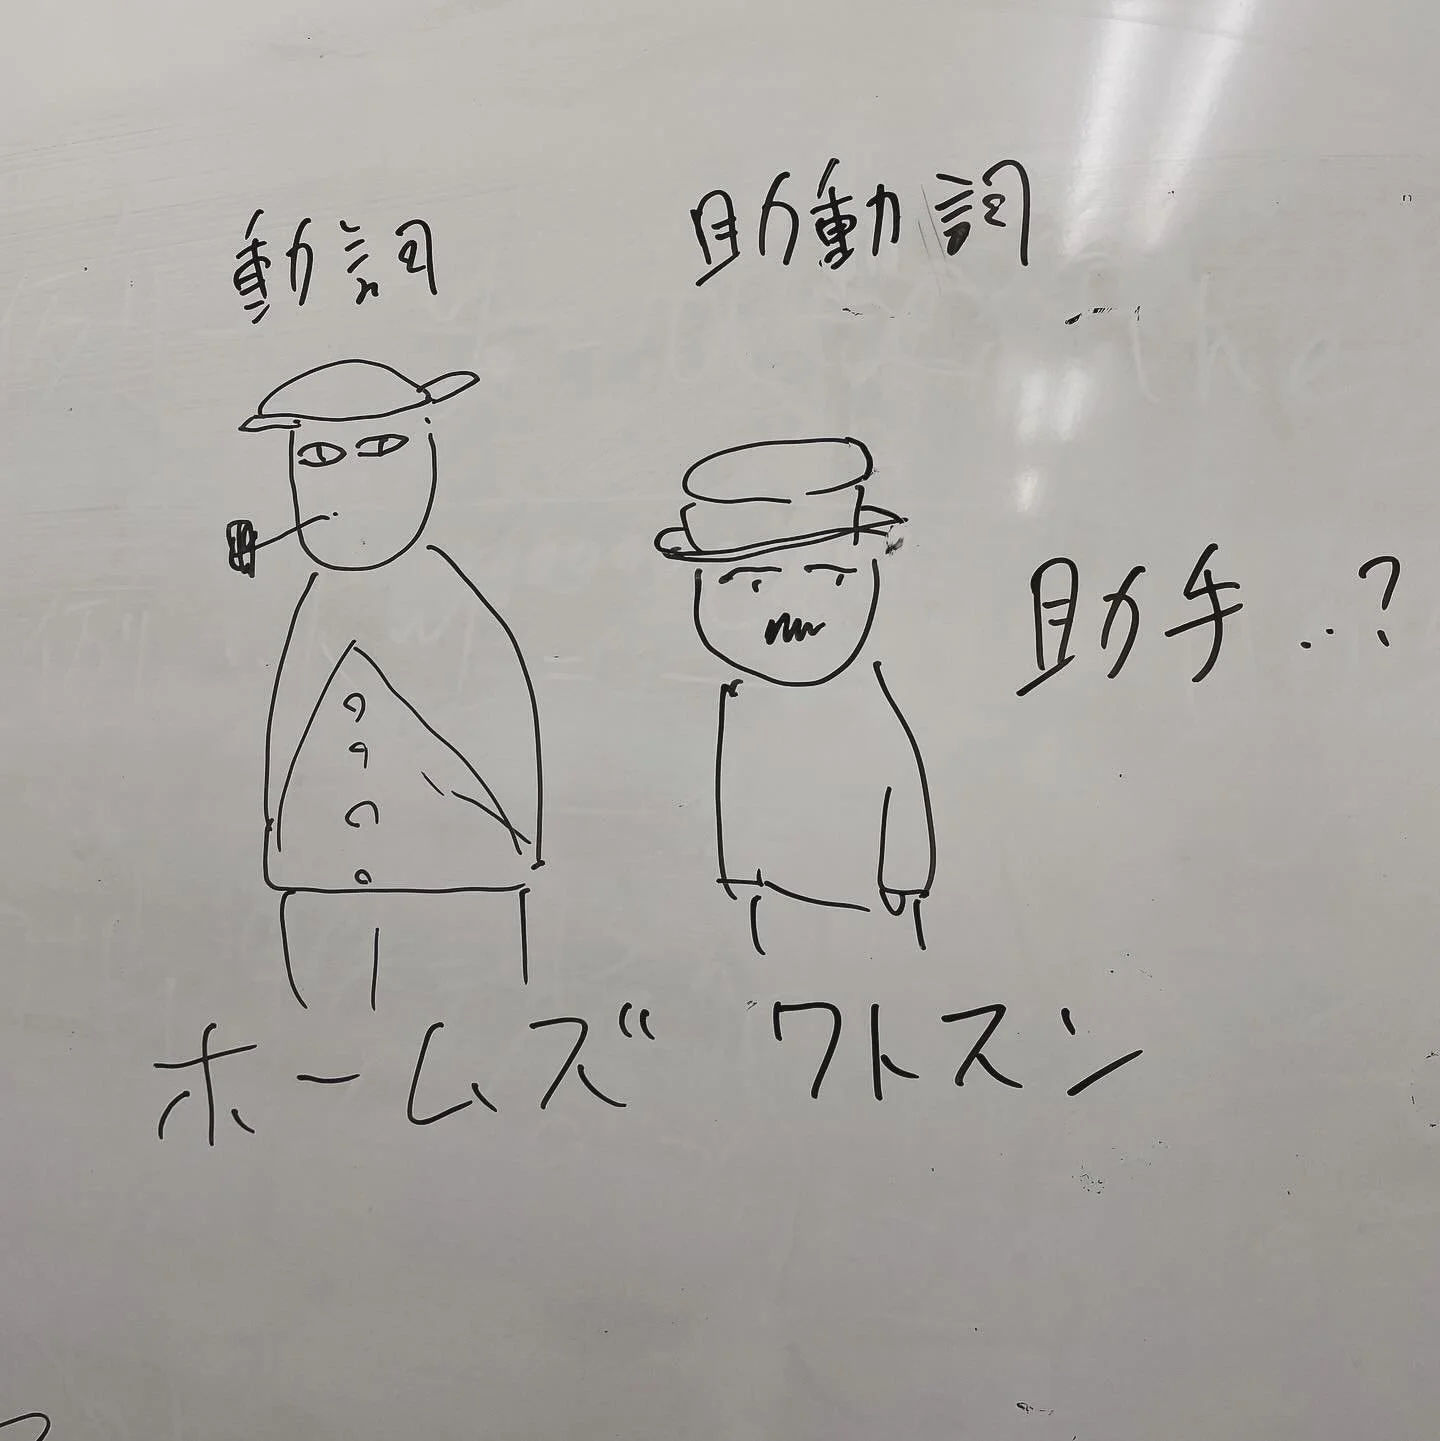 動詞
助動詞
助手..?
ホームズ
ワトスン